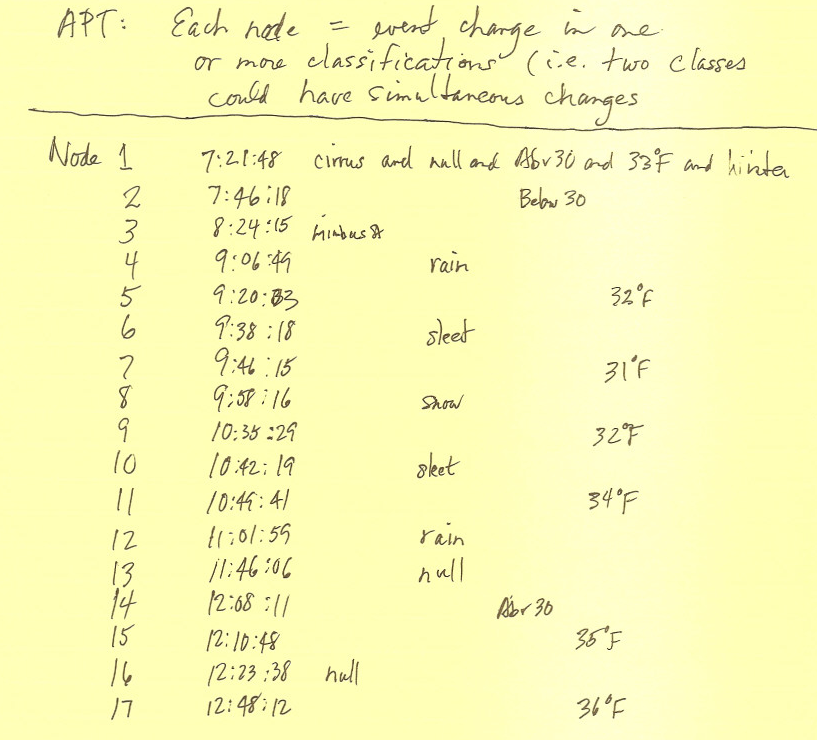 APT: Each node = event, change in one
or more classifications (i.e. two classes
could have simultaneous changes
Node 1 7:21:48 cirrus and null and Abv 30 and 33°F and
2 7:46:18 Below 30
3 8:24:15 nimbus st
4 9:06:49 rain
5 9:20:03 32°F
6 9:38:18 sleet
7 9:46:15 31°F
8 9:58:16 snow
9 10:35:29 32°F
10 10:42:19 sleet
11 10:49:41 34°F
12 11:01:59 rain
13 11:46:06 null
14 12:08:11 Abv 30
15 12:10:48 35°F
16 12:23:38 null
17 12:48:12 36°F